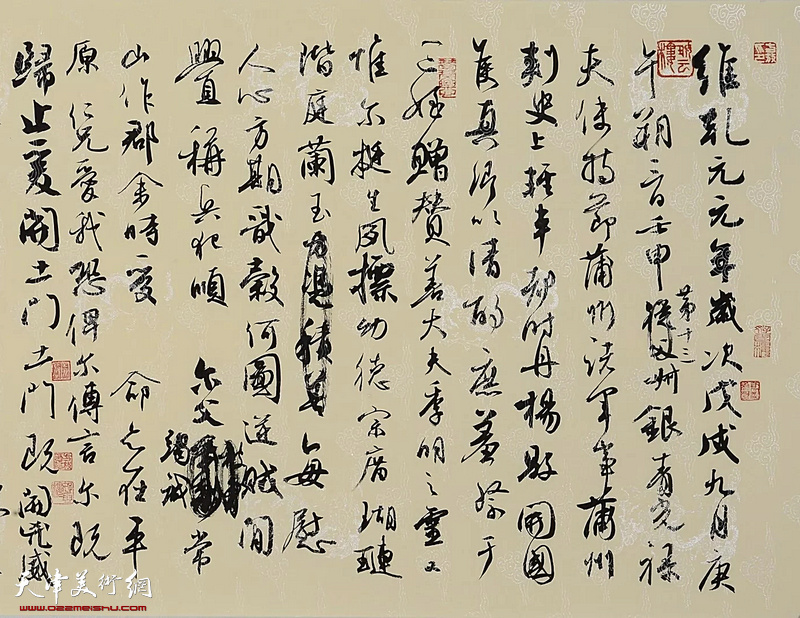 維乾元元年歲次戊戌九月庚
午朔三日壬申 第十三 從父 銀青光祿
夫使持節蒲州諸軍事蒲州
刺史上輕車都尉丹楊縣開國
侯真卿以清酌庶羞祭于
亡姪贈贊善大夫季明之靈 又
惟爾挺生夙標幼德宗廟瑚璉
階庭蘭玉方憑積善 每慰
人心方期戩穀何圖逆賊間
釁稱兵犯順 爾父竭誠 常
山作郡余時受 命亦在平
原仁兄愛我恐俾爾傳言爾既
歸止爰開土門土門既開兇威
天津美術網
www.022meishu.com